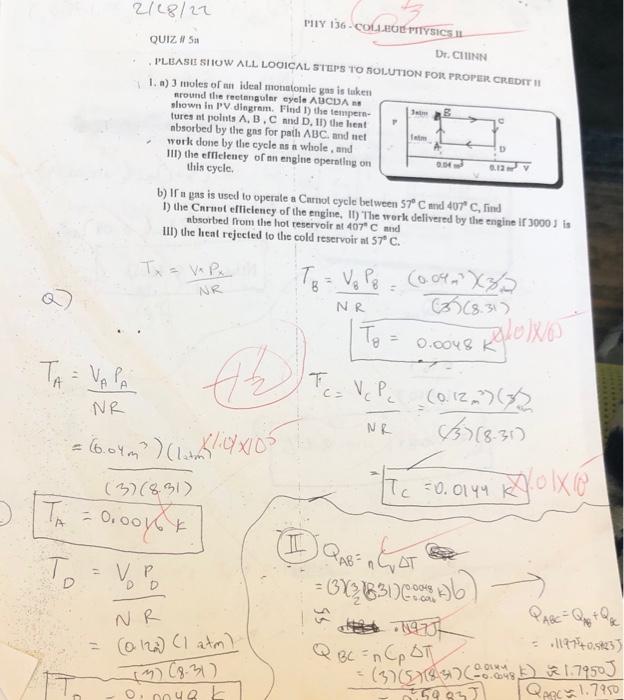 2/28/22
3
PHY 136 - COLLEGE PHYSICS II
QUIZ # 5a
Dr. CHINN
PLEASE SHOW ALL LOGICAL STEPS TO SOLUTION FOR PROPER CREDIT !!
1. a) 3 moles of an ideal monatomic gas is taken
around the rectangular cycle ABCDA as
shown in PV diagram. Find I) the tempera-
tures at points A, B, C and D, II) the heat
absorbed by the gas for path ABC. and net
work done by the cycle as a whole, and
III) the efficiency of an engine operating on
this cycle.
P
3atm
B
C
1atm
A
D
0.04 m³
0.12 m³
V
b) If a gas is used to operate a Carnot cycle between 57° C and 407° C, find
I) the Carnot efficiency of the engine, II) The work delivered by the engine if 3000 J is
absorbed from the hot reservoir at 407° C and
III) the heat rejected to the cold reservoir at 57° C.
Tx = Vx Px / NR
a)
TB = VB PB / NR = (0.04m³)(3) / (3)(8.31)
TB = 0.0048 K
x1.01x10⁵
TA = VA PA / NR
-1½
= (0.04m³)(1atm) / (3)(8.31)
x1.01x10⁵
TA = 0.0016 K
TC = VC PC / NR = (0.12m³)(3) / (3)(8.31)
= TC = 0.0144 K
x1.01x10⁵
TD = VD PD / NR
= (0.12) (1 atm) / (3)(8.31)
TD = 0.0048 K
II
QAB = nCvΔT
= (3)(3/2)(8.31)
.1197J
QBC = nCpΔT
= (3)(5/2)(8.31)(0.0144 - 0.0048 K)
= .5983J
QABC = QAB + QBC
= .1197+0.5983J
≈ 1.7950J
QABC ≈ 1.7950